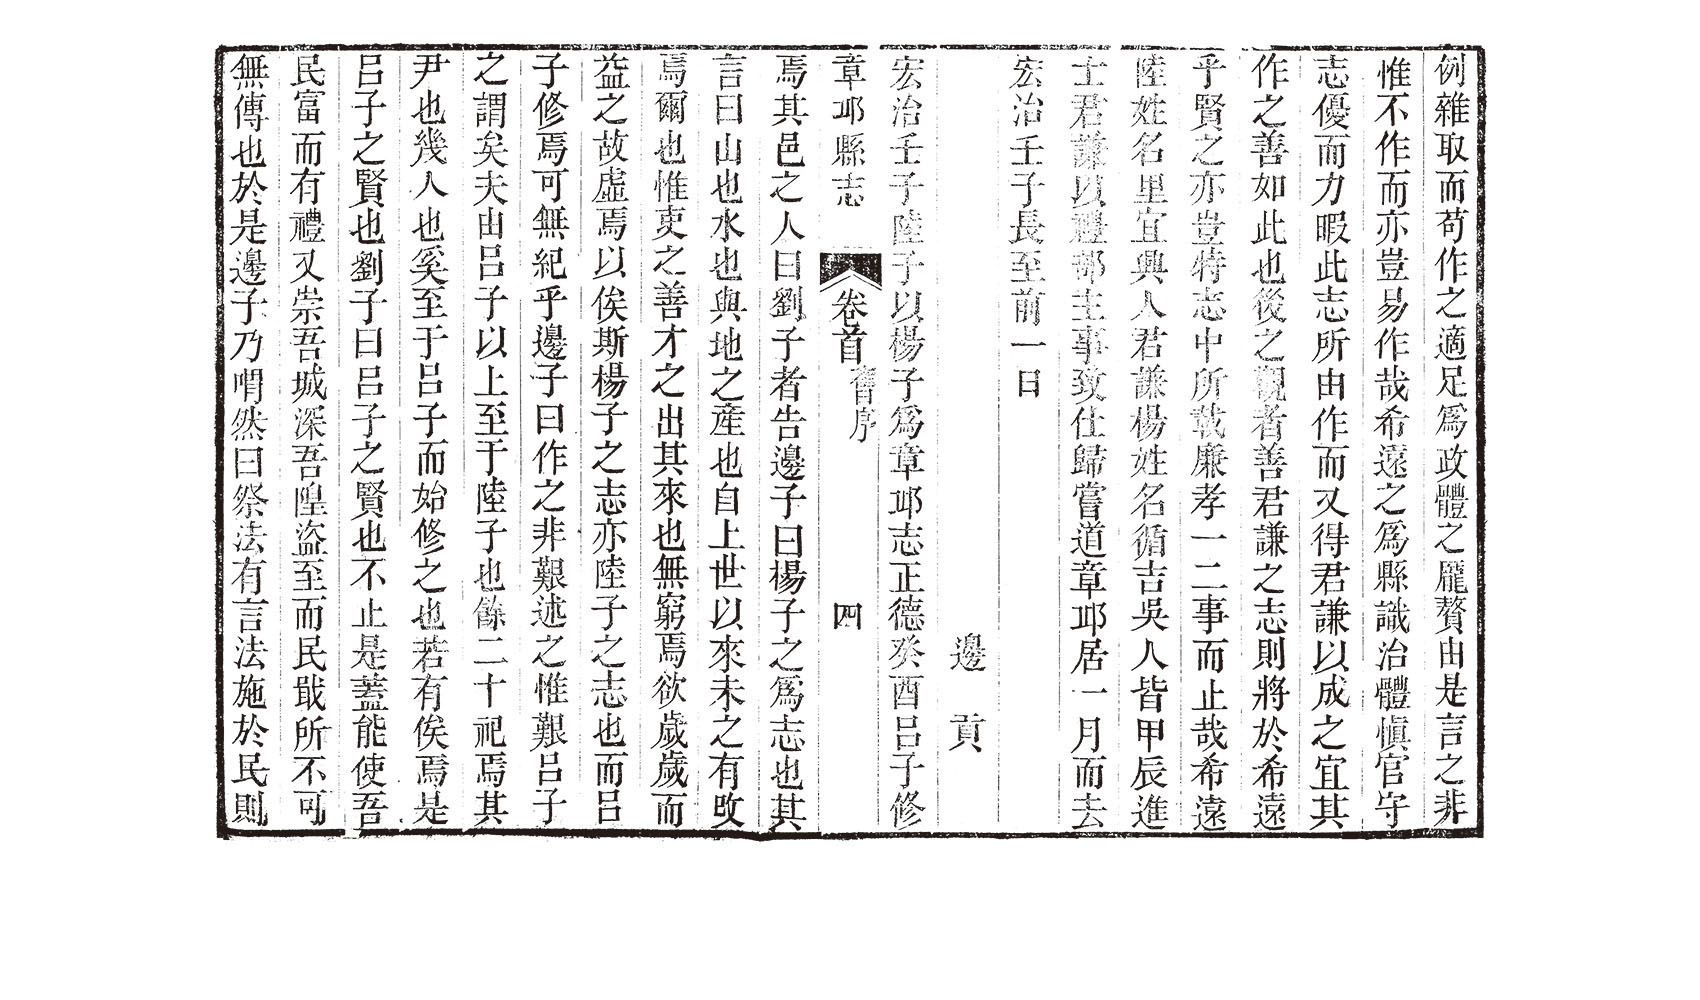 例雜取而苟作之適足爲政體之厖贅由是言之非
惟不作而亦豈易作哉希遠之爲縣識治體慎官守
志優而力暇此志所由作而又得君謙以成之宜其
作之善如此也後之觀者善君謙之志則將於希遠
乎賢之亦豈特志中所載廉孝一二事而止哉希遠
陸姓名里宜興人君謙楊姓名循吉吳人皆甲辰進
士君謙以禮部主事致仕歸嘗道章邱居一月而去
宏治壬子長至前一日
邊貢
宏治壬子陸子以楊子爲章邱志正德癸酉呂子修
章邱縣志 卷首 舊序 四
焉其邑之人曰劉子者告邊子曰楊子之爲志也其
言曰山也水也與地之產也自上世以來未之有攺
焉爾也惟吏之善才之出其來也無窮焉欲歲歲而
益之故虛焉以俟斯楊子之志亦陸子之志也而呂
子修焉可無紀乎邊子曰作之非艱述之惟艱呂子
之謂矣夫由呂子以上至于陸子也餘二十祀焉其
尹也幾人也奚至于呂子而始修之也若有俟焉是
呂子之賢也劉子曰呂子之賢也不止是蓋能使吾
民富而有禮又崇吾城深吾隍盜至而民戢所不可
無傳也於是邊子乃喟然曰祭法有言法施於民則